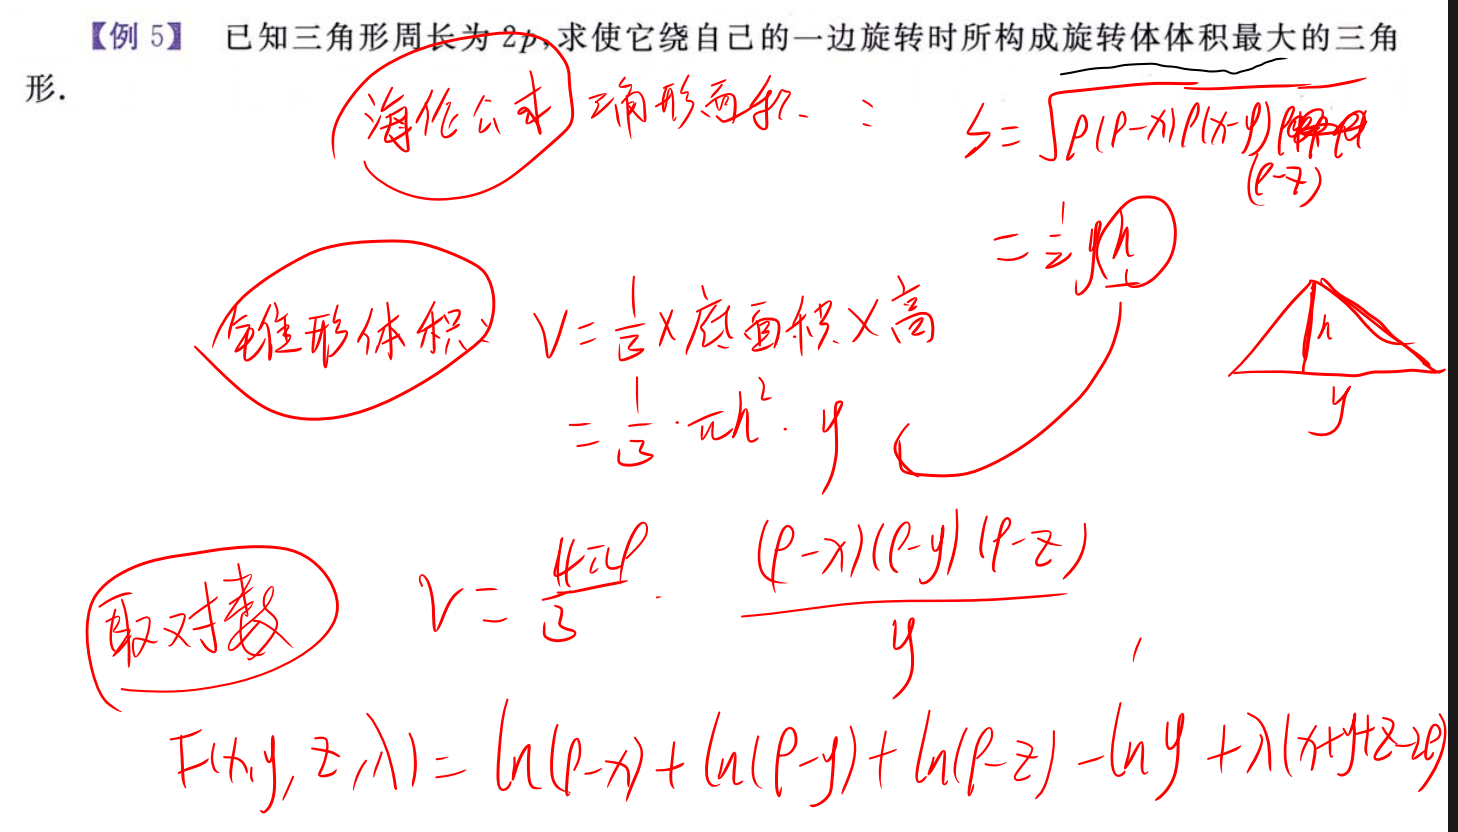 【例 5】 已知三角形周长为 2p,求使它绕自己的一边旋转时所构成旋转体体积最大的三角
形.
海伦公式 三角形面积: S=√p(p-x)p(x-y)
(p-z)
=1/2 yh
锥形体积: V=1/3×底面积×高
h
=1/3·πh²·y
y
取对数 V=4πp/3·(p-x)(p-y)(p-z)/y
F(x,y,z,λ)=ln(p-x)+ln(p-y)+ln(p-z)-lny+λ(x+y+z-2p)